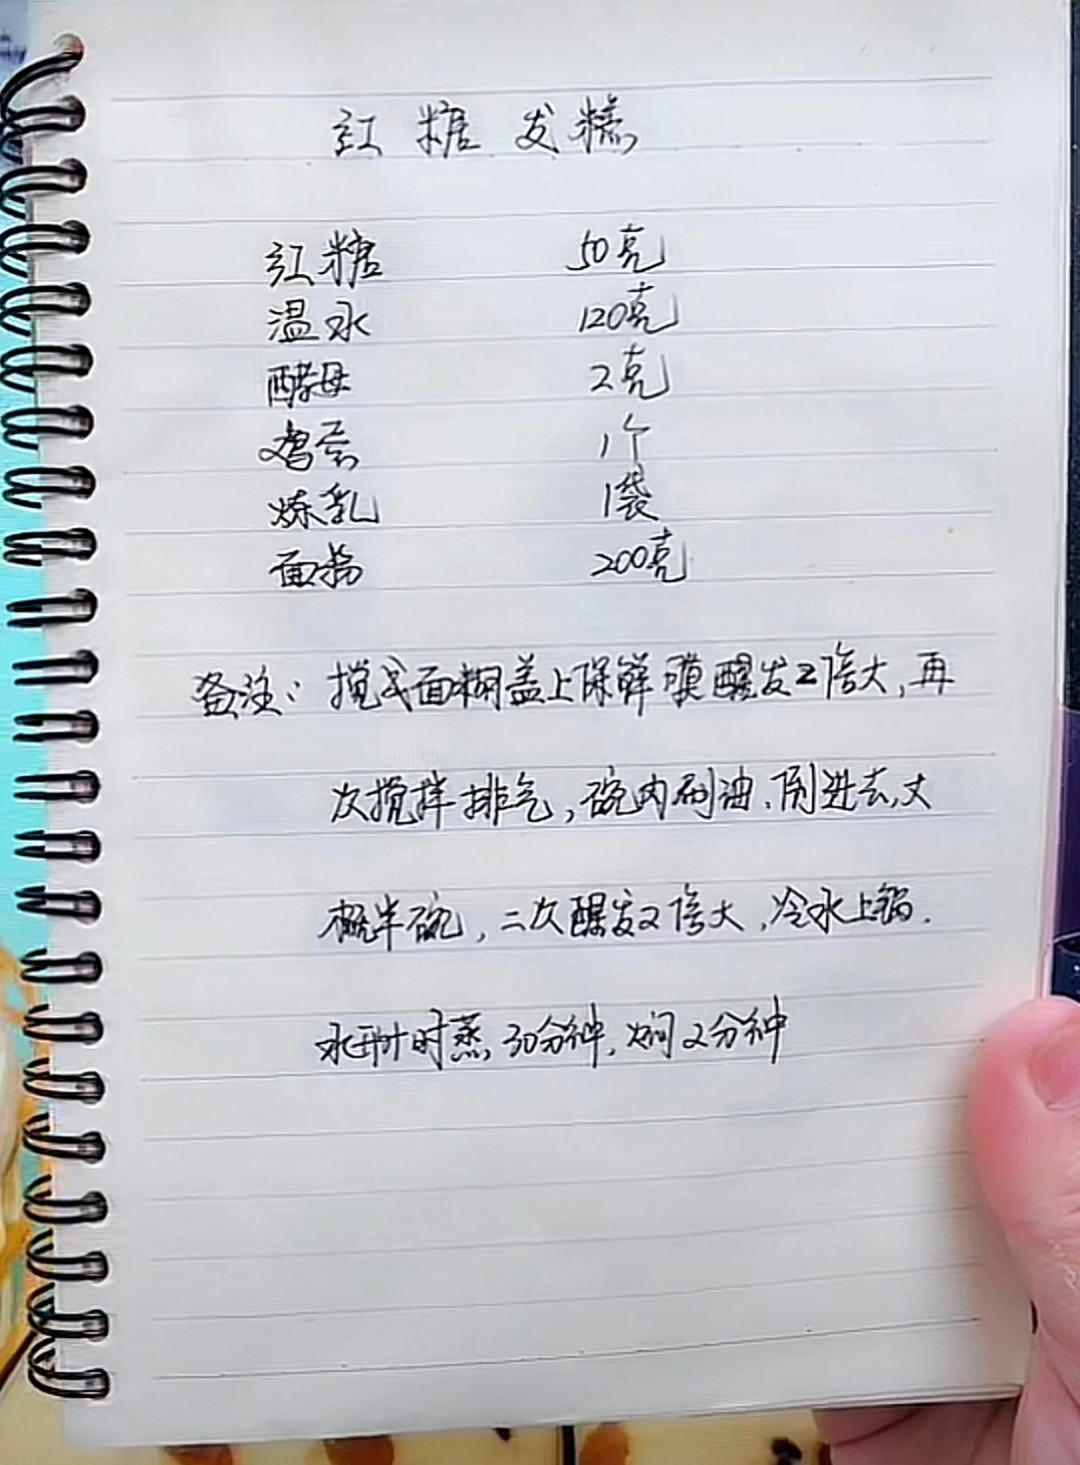 红糖发糕
红糖 50克
温水 120克
酵母 2克
鸡蛋 1个
炼乳 1袋
面粉 200克
备注：搅成面糊盖上保鲜膜醒发2倍大，再
次搅拌排气，碗内刷油，倒进去，大
概半碗，二次醒发2倍大，冷水上锅.
水开计时蒸30分钟，焖2分钟